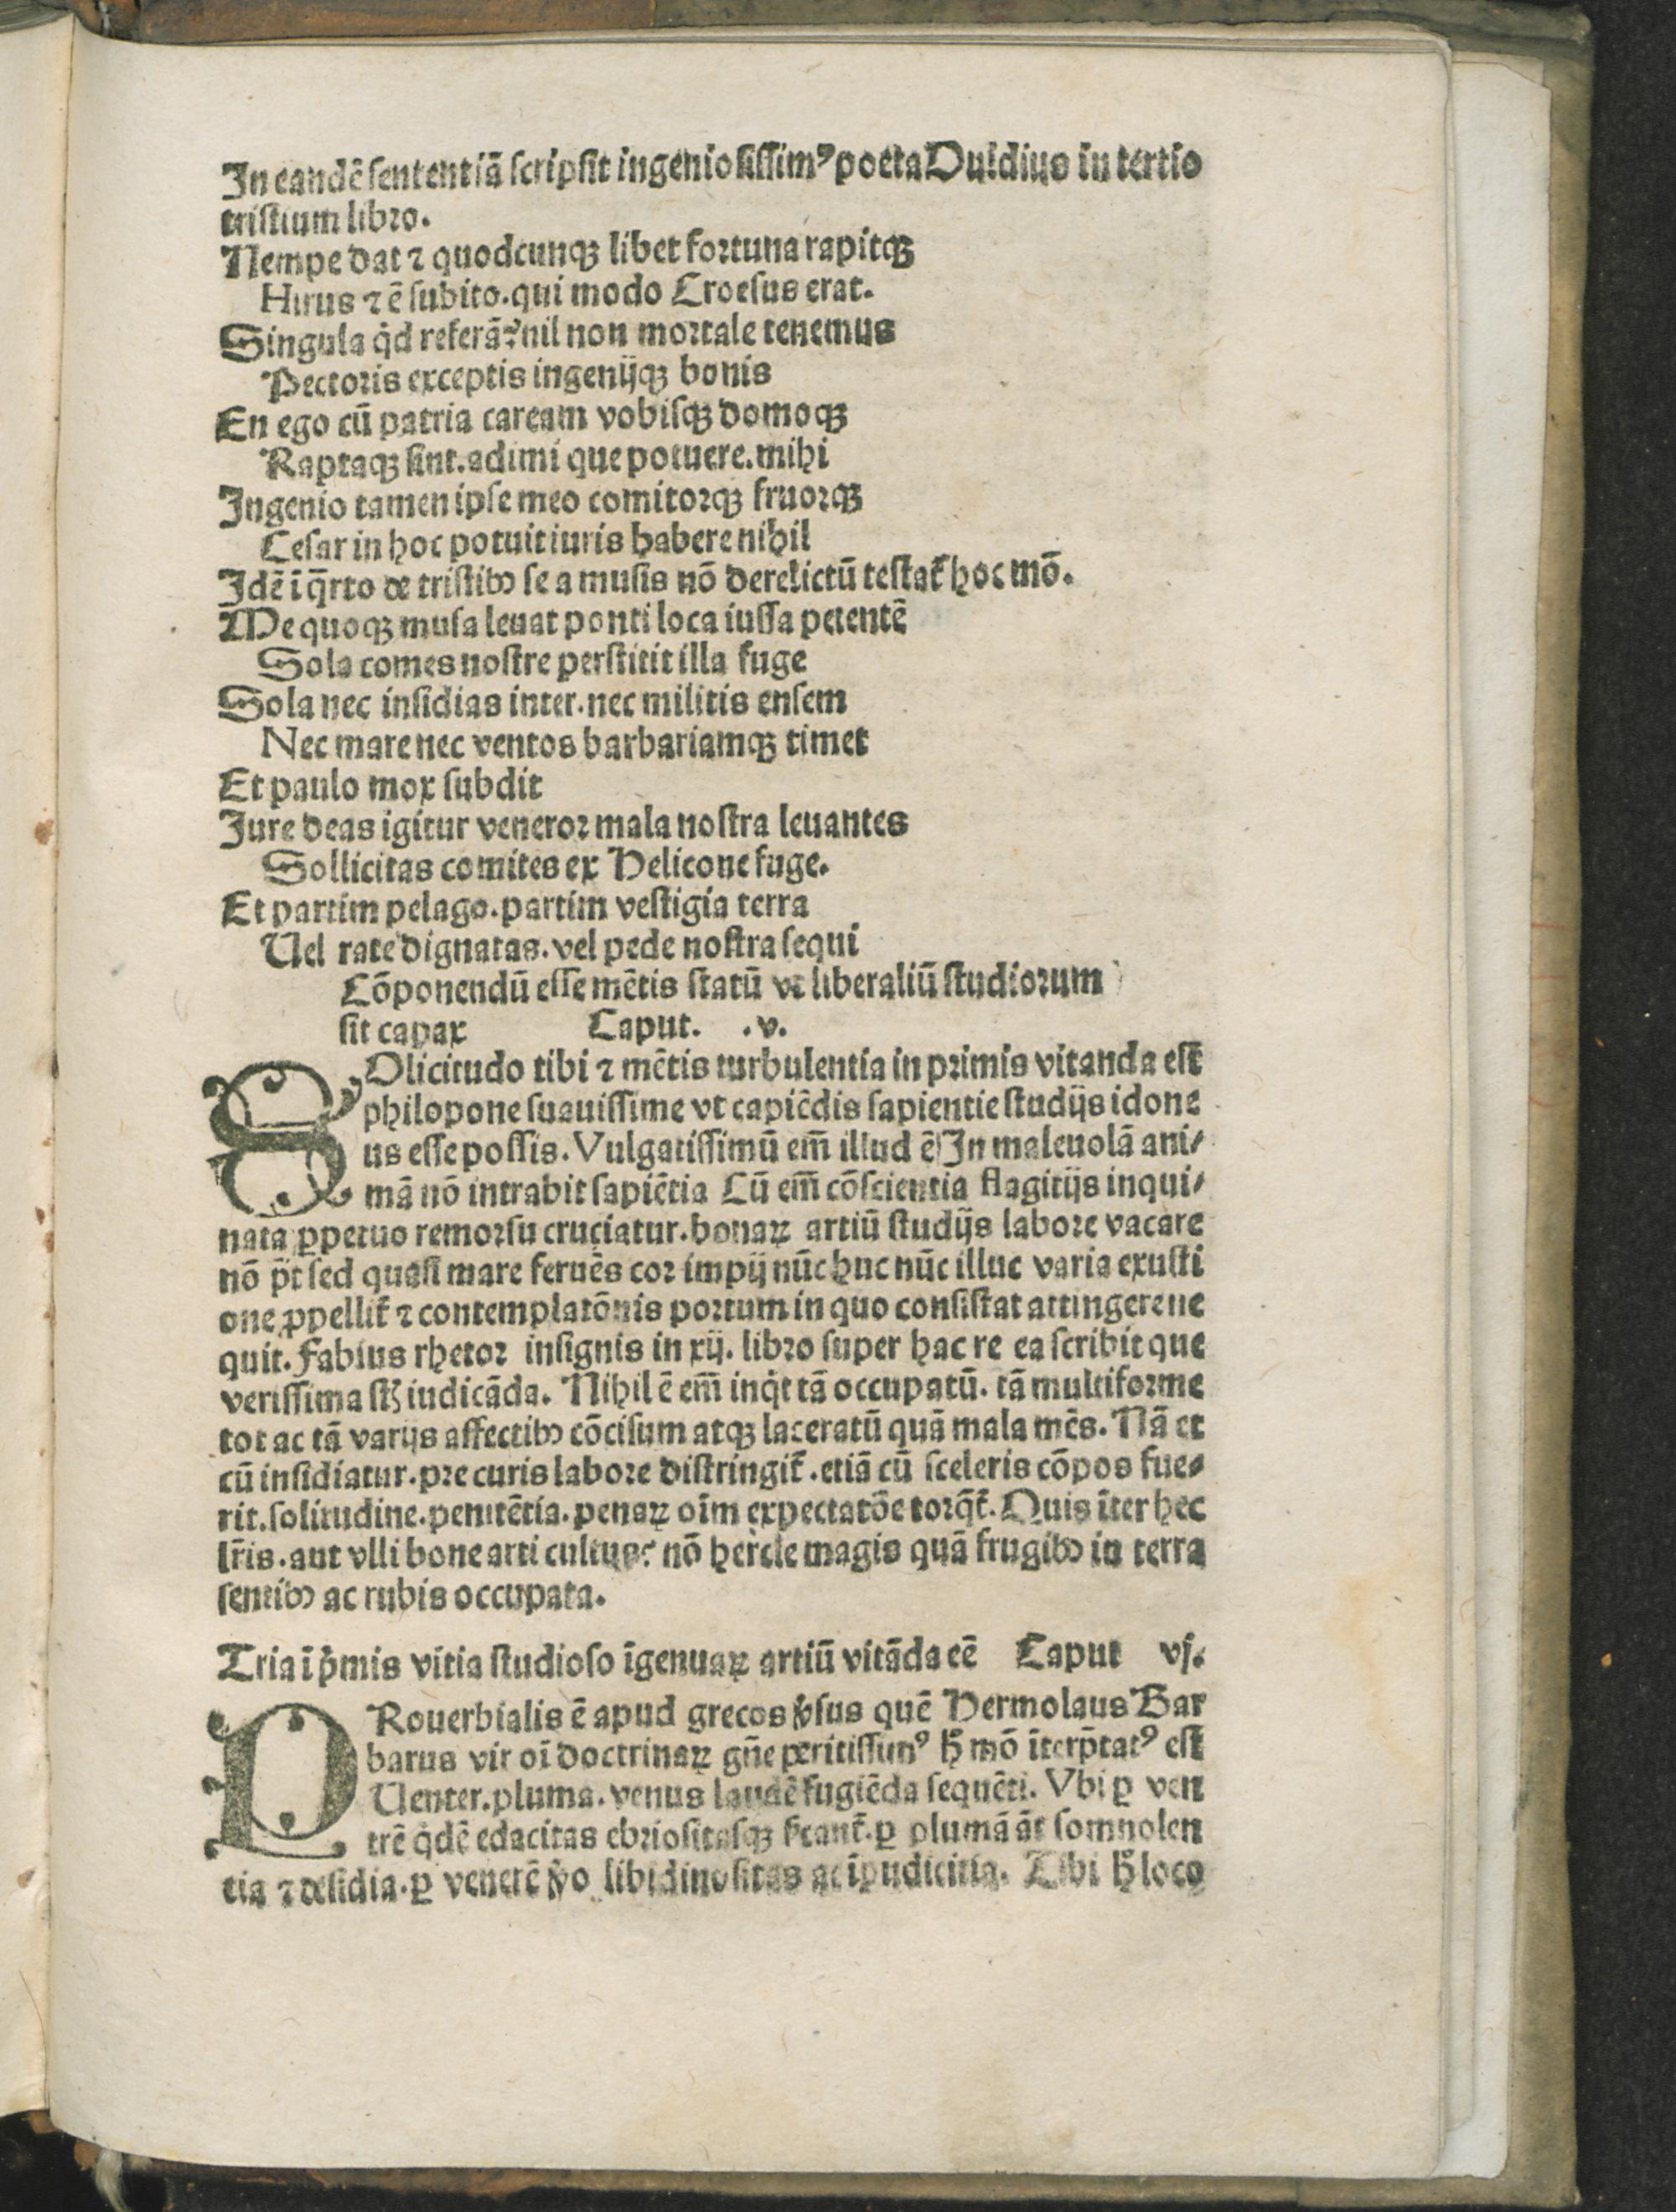 In eandē sententiā scripsit ingeniosissimꝰ poeta Ouidius in tertio
tristium libro.
Nempe dat ⁊ quodcunqꝫ libet fortuna rapitqꝫ
Hirus ⁊ ē subito. qui modo Croesus erat.
Singula qd̄ referā? nil non mortale tenemus
Pectoris exceptis ingenijqꝫ bonis
En ego cū patria caream vobisqꝫ domoqꝫ
Raptaqꝫ sint. adimi que potuere. mihi
Ingenio tamen ipse meo comitorqꝫ fruorqꝫ
Cesar in hoc potuit iuris habere nihil
Idē ī q̄rto de tristibꝰ se a musis nō derelictū testat̄ hoc mō.
Me quoqꝫ musa leuat ponti loca iussa petentē
Sola comes nostre perstitit illa fuge
Sola nec insidias inter. nec militis ensem
Nec mare nec ventos barbariamqꝫ timet
Et paulo mox subdit
Iure deas igitur veneror mala nostra leuantes
Sollicitas comites ex Helicone fuge.
Et partim pelago. partim vestigia terra
Uel rate dignatas. vel pede nostra sequi
Cōponendū esse mētis statū vt liberaliū studiorum
sit capax Caput. .v.
SOlicitudo tibi ⁊ mētis turbulentia in primis vitanda est
philopone suauissime vt capiēdis sapientie studijs idone
us esse possis. Vulgatissimū em̄ illud ē In maleuolā ani/
mā nō intrabit sapiētia Cū em̄ cōscientia flagitijs inqui/
nata ꝑpetuo remorsu cruciatur. bonaꝝ artiū studijs labore vacare
nō pt̄ sed quasi mare feruēs cor impij nūc huc nūc illuc varia exusti
one ꝓpellit̄ ⁊ contemplatōnis portum in quo consistat attingere ne
quit. Fabius rhetor insignis in xij. libro super hac re ea scribit que
verissima sūt iudicāda. Nihil ē em̄ inqt̄ tā occupatū. tā multiforme
tot ac tā varijs affectibꝰ cōcisum atqꝫ laceratū quā mala mēs. Nā et
cū insidiatur. pre curis labore distringit̄. etiā cū sceleris cōpos fue/
rit. solitudine. penitētia. penaꝝ oīm expectatōe torq̄t̄. Quis īter hec
lr̄is. aut vlli bone arti cultus? nō hercle magis quā frugibꝰ in terra
sentibꝰ ac rubis occupata.
Tria ī pͥmis vitia studioso īgenuaꝝ artiū vitāda eē Caput vj.
PRouerbialis ē apud grecos ꝟsus quē Hermolaus Bar
barus vir oī doctrinaꝝ gn̄e peritissimꝰ h̄ mō īterp̄tatꝰ est
Uenter. pluma. venus laudē fugiēda sequēti. Vbi ꝑ ven
trē qͥdē edacitas ebriositasqꝫ ꝑ plumā āt somnolen
tia ⁊ desidia. ꝑ venerē ꝟo libidinositas ac īpudicitia. Tibi h̄ loco